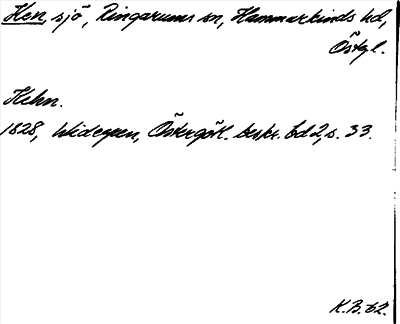 Hen, sjö, Ringarums sn, Hammarkinds hd,
Östgl.
Hehn.
1828, Widegren, Östergötl. beskr. bd 2, s. 33.
K.B. 62.